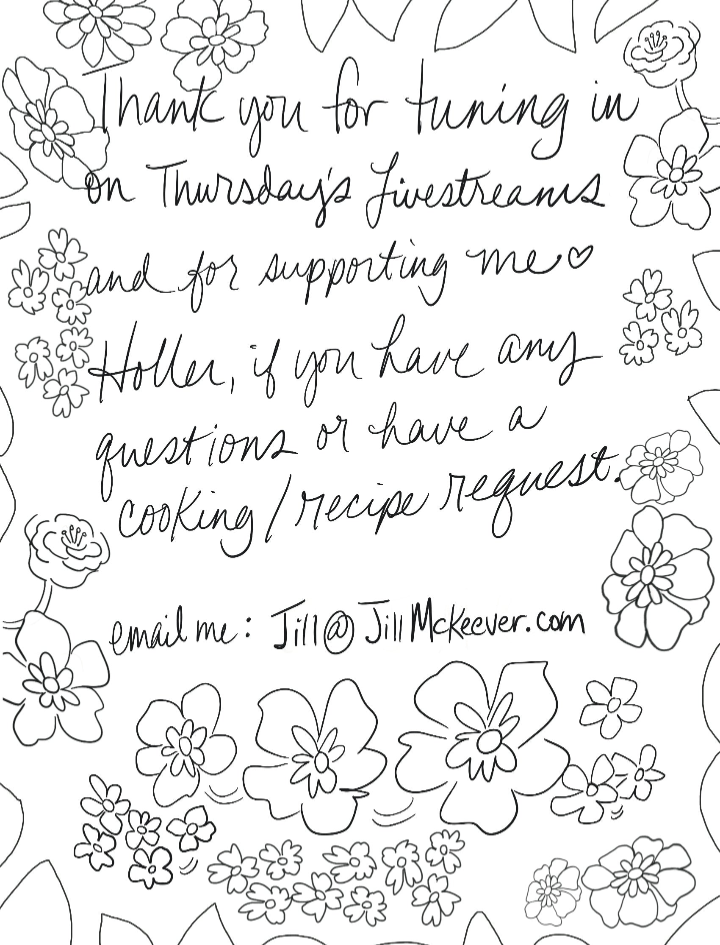 Thank you for tuning in
on Thursday's Livestreams
and for supporting me♡
Holler, if you have any
questions or have a
cooking/recipe request.
email me: Jill@JillMcKeever.com